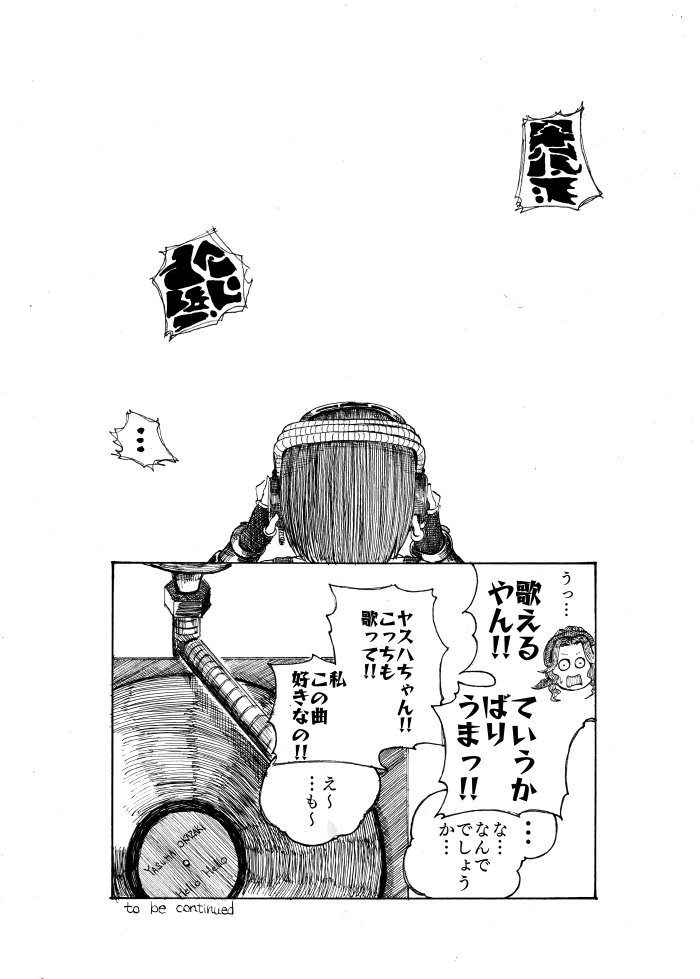 …
うっ…
歌える
やん!!
ていうか
ばり
うまッ!!
…
な…
なんで
でしょう
か…
ヤスハちゃん!!
こっちも
歌って!!
私
この曲
好きなの!!
え〜
…も〜
YASUHA OKAZAKI
Hello Hello
to be continued